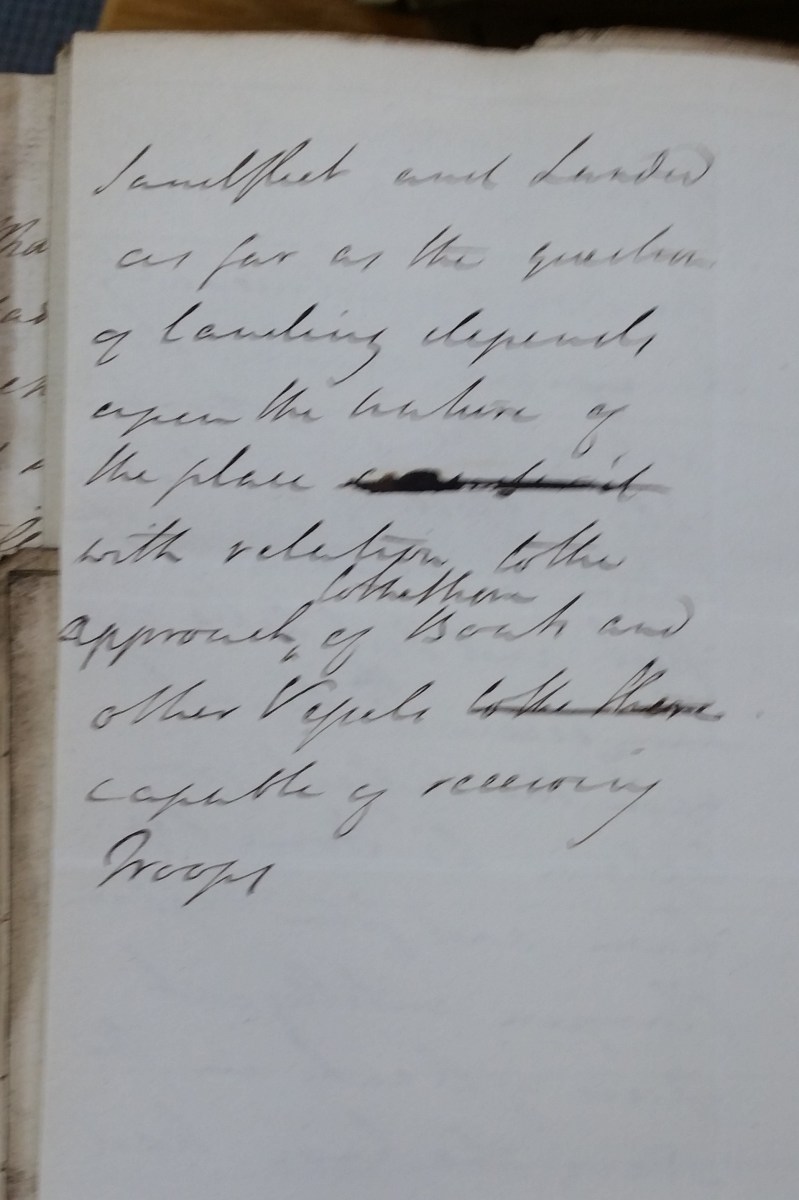 Sandfleet and Lander
as far as the question
of landing depends
upon the nature of
the place
with relation to the
to the Shore
approach of Boats and
other Vessels to the Shore
capable of receiving
Troops